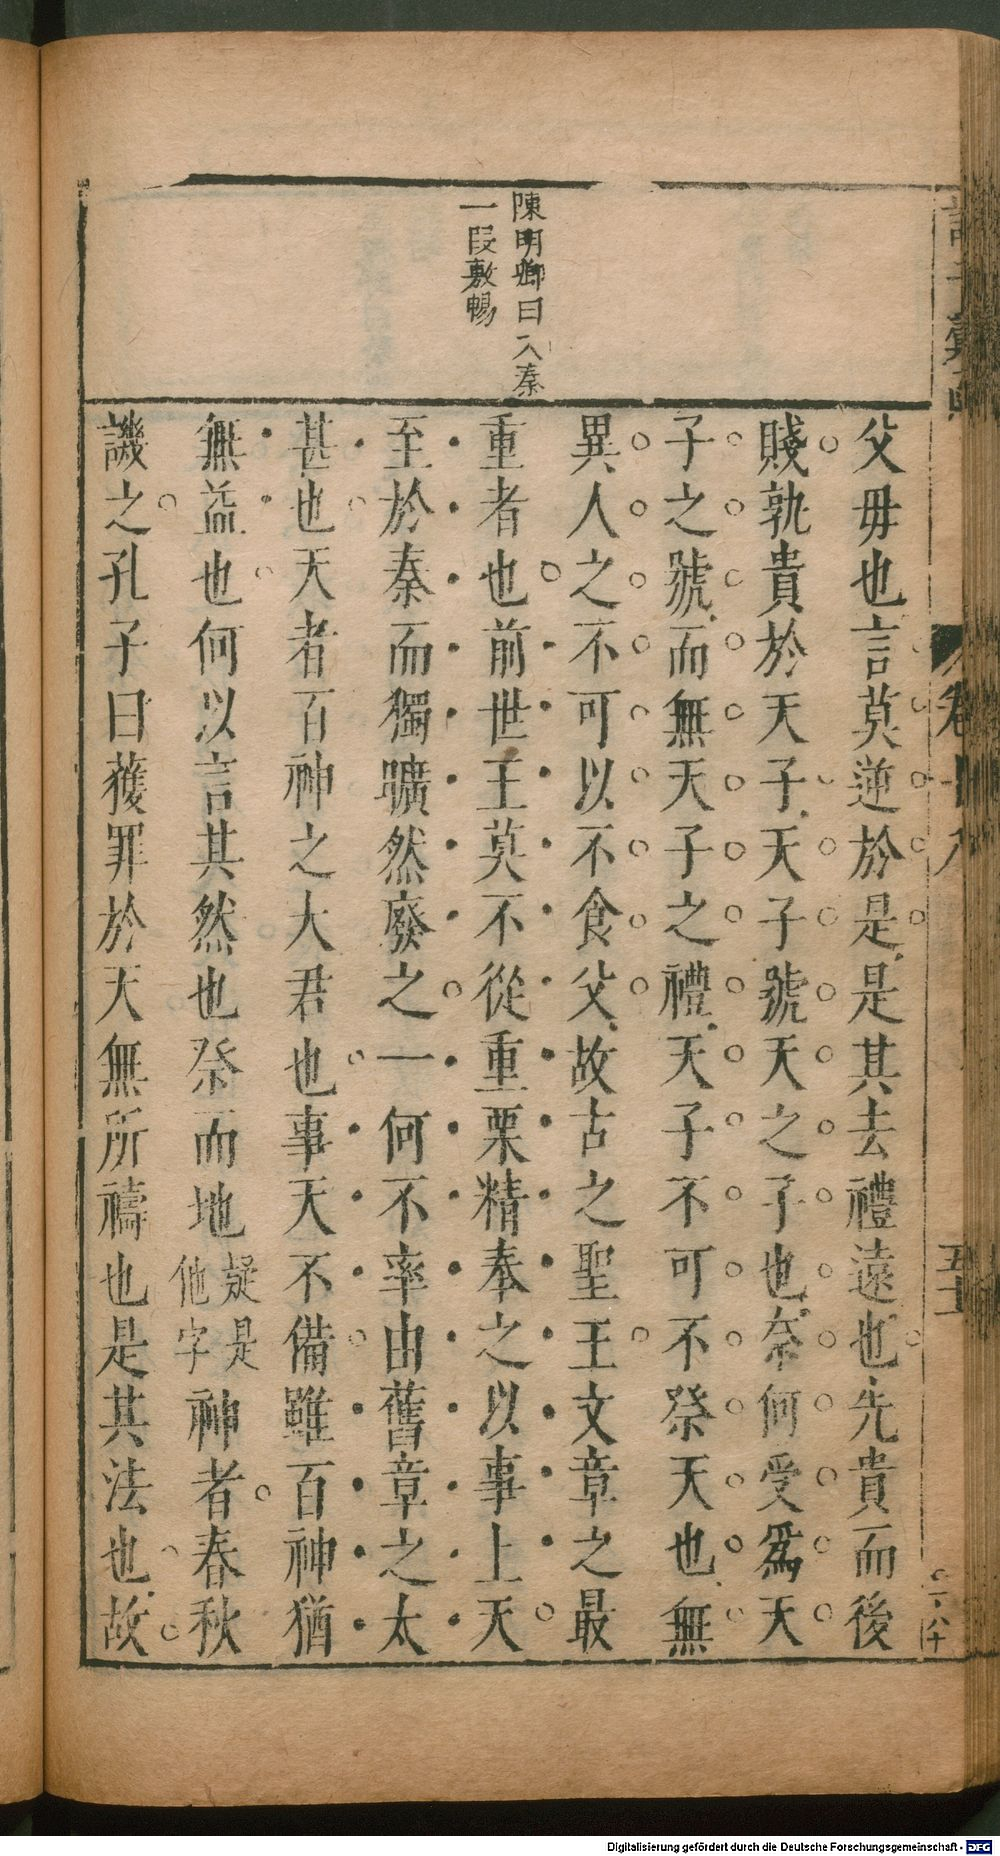 陳明卿曰入秦
一段敷暢
父毋也言莫逆於是是其去禮遠也先貴而後
賤孰貴於天子天子號天之子也柰何受爲天
子之號而無天子之禮天子不可不祭天也無
異人之不可以不食父故古之聖王文章之最
重者也前世王莫不從重栗精奉之以事上天
至於秦而獨曠然廢之一何不率由舊章之太
甚也天者百神之大君也事天不備雖百神猶
無益也何以言其然也祭而地疑是他字神者春秋
譏之孔子曰獲罪於天無所禱也是其法也故
卷十八
五十
Digitalisierung gefördert durch die Deutsche Forschungsgemeinschaft - DFG